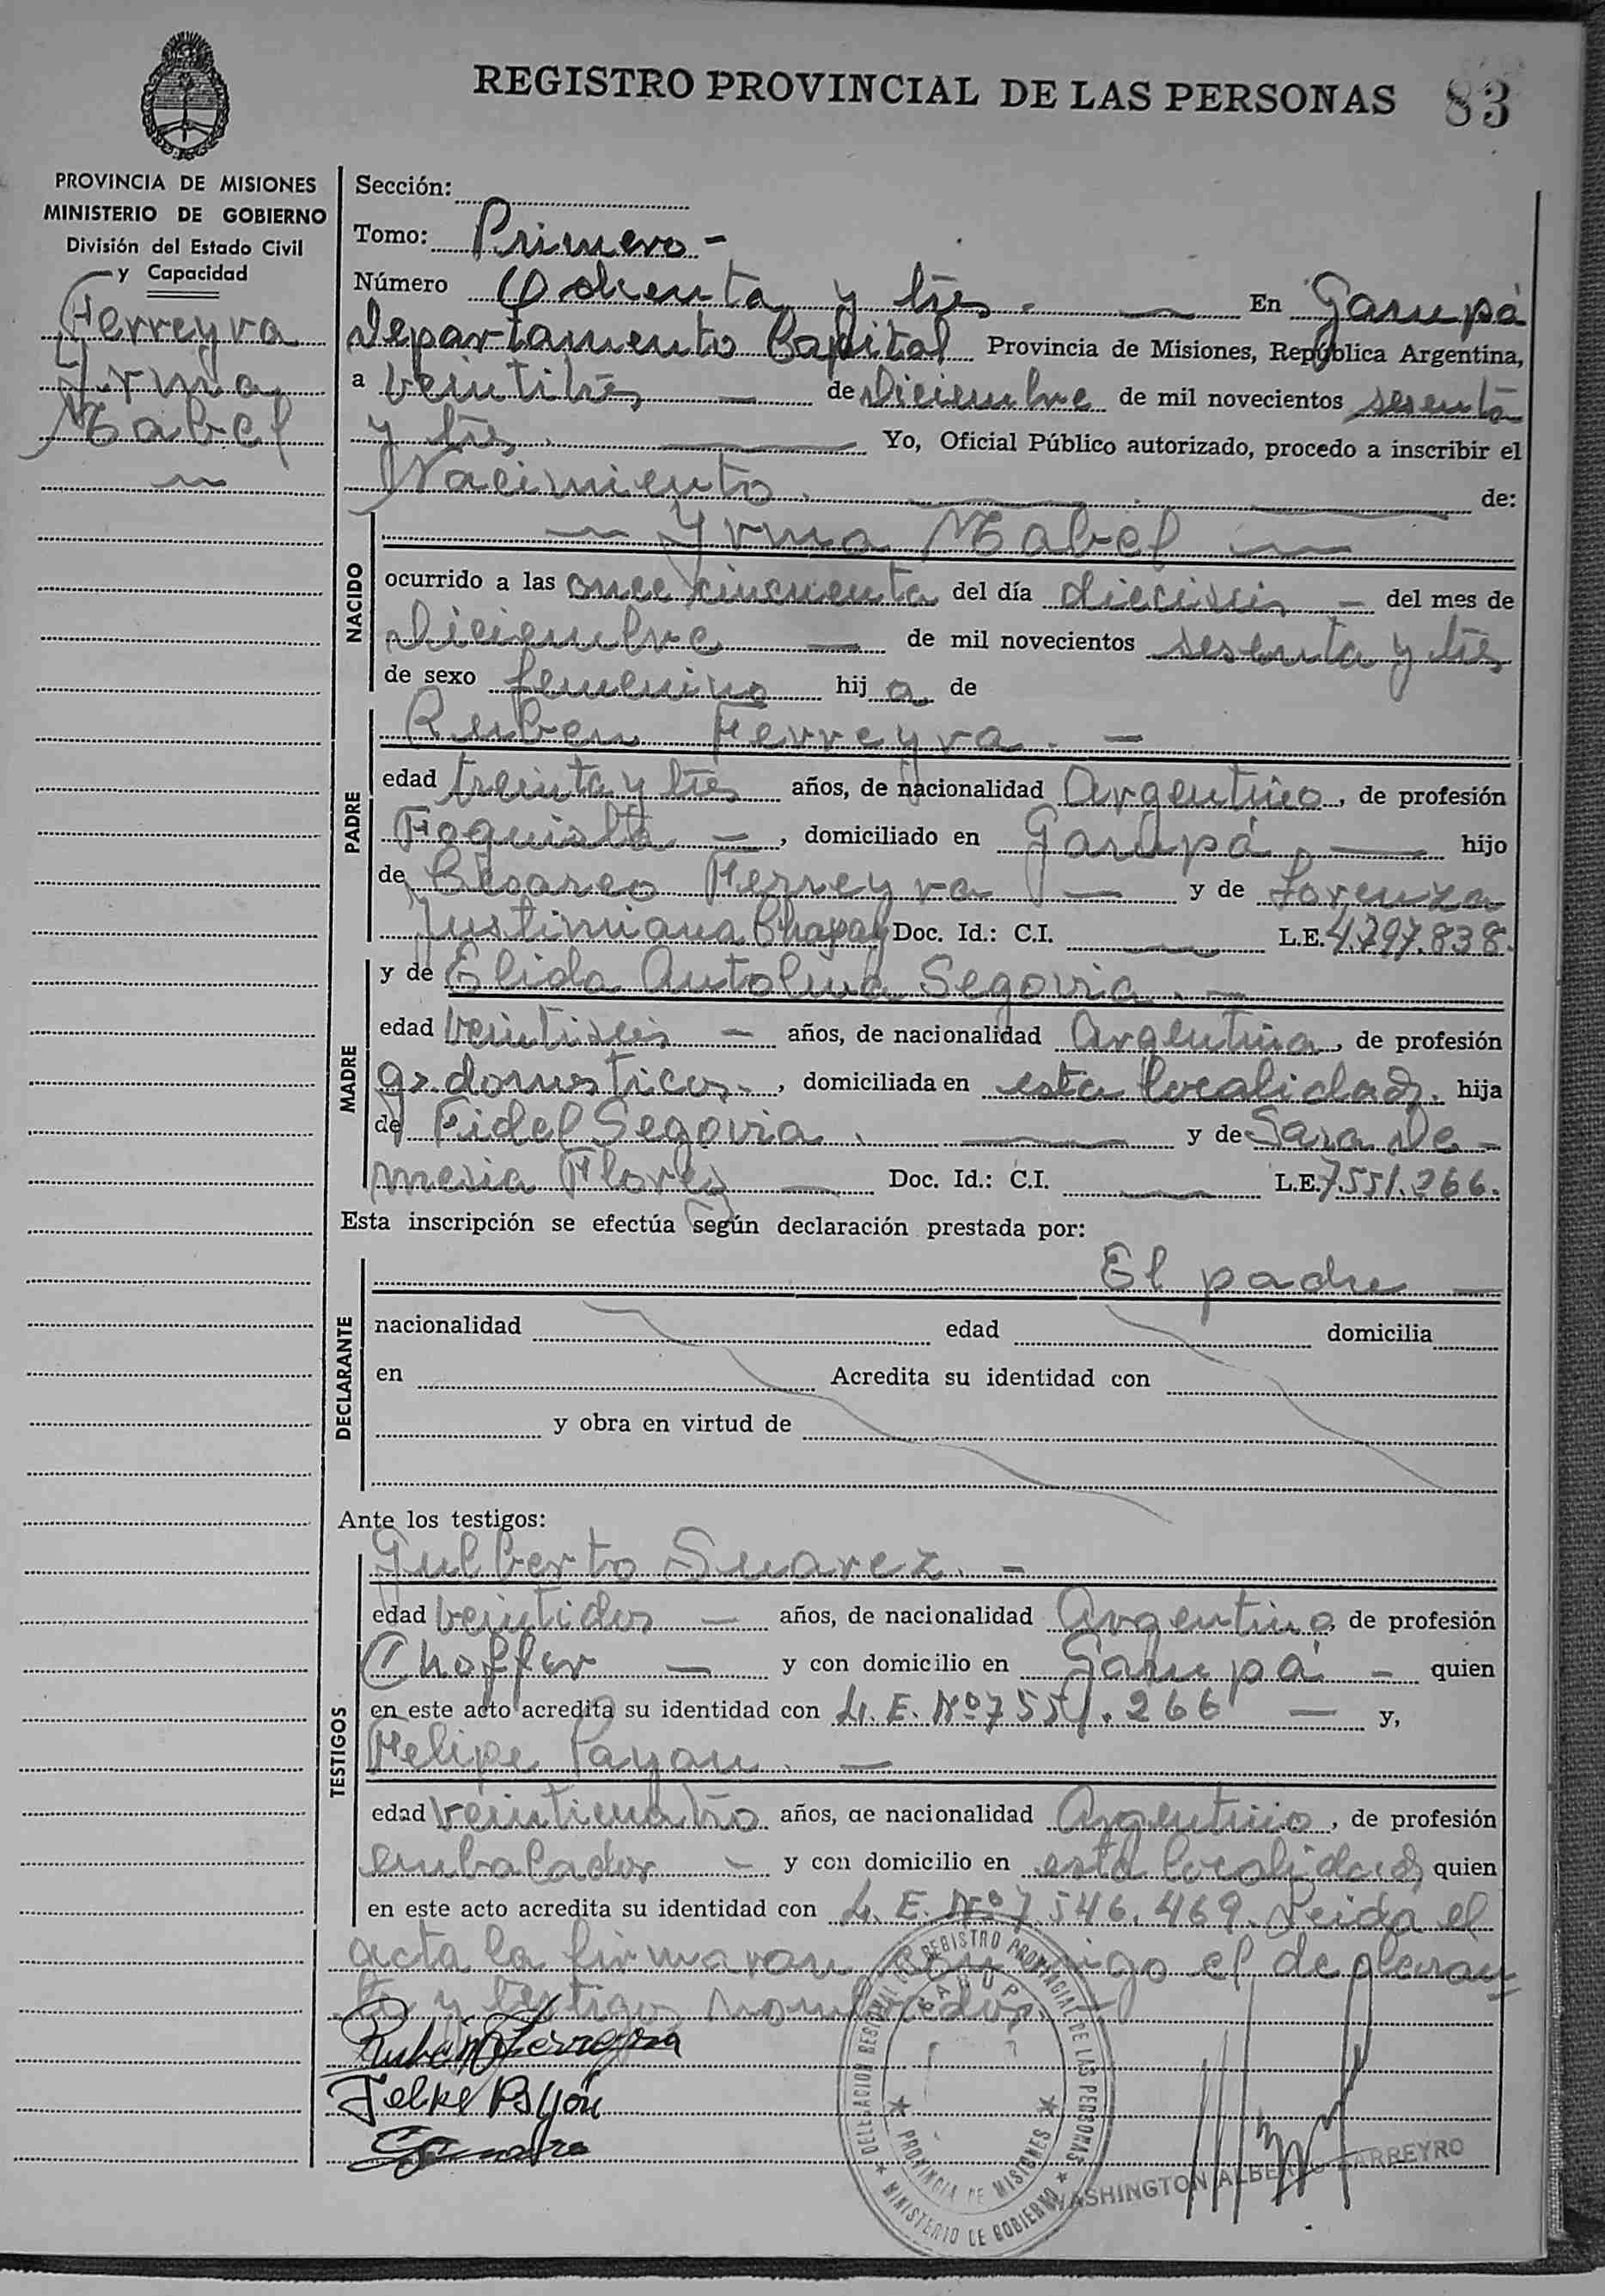 REGISTRO PROVINCIAL DE LAS PERSONAS 83
PROVINCIA DE MISIONES
MINISTERIO DE GOBIERNO
División del Estado Civil
y Capacidad
Ferreyra
Yrma
Mabel
Sección:
Tomo: Primero -
Número Ochenta y tres. — En Garupá
Departamento Capital Provincia de Misiones, República Argentina,
a veintitrés — de Diciembre de mil novecientos sesenta
y tres. — Yo, Oficial Público autorizado, procedo a inscribir el
Nacimiento. — de:
NACIDO
— Yrma Mabel —
ocurrido a las once cincuenta del día dieciseis — del mes de
Diciembre — de mil novecientos sesenta y tres
de sexo femenino hij a de
PADRE
Ruben Ferreyra. —
edad treinta y tres años, de nacionalidad Argentino, de profesión
Foguista —, domiciliado en Garupá. — hijo
de Cesareo Ferreyra — y de Lorenza
Justiniana Chapay Doc. Id.: C.I. — L.E. 4.797.838.
MADRE
y de Elida Antolina Segovia. —
edad veintiseis — años, de nacionalidad Argentina, de profesión
qs. domesticos. -, domiciliada en esta localidad. hija
de Fidel Segovia. — y de Sara Ne-
mesia Flores — Doc. Id.: C.I. — L.E. 7.551.266.
Esta inscripción se efectúa según declaración prestada por:
DECLARANTE
El padre —
nacionalidad edad domicilia
en Acredita su identidad con
y obra en virtud de
Ante los testigos:
TESTIGOS
Gulberto Suarez. —
edad veintidos — años, de nacionalidad Argentino, de profesión
Choffer — y con domicilio en Garupá — quien
en este acto acredita su identidad con L. E. Nº 7551.266 — y,
Felipe Payon. —
edad veinticuatro años, de nacionalidad Argentino, de profesión
embalador — y con domicilio en esta localidad quien
en este acto acredita su identidad con L. E. Nº 7.546.469. Leida el
acta la firmaron conmigo el declaran
te y testigos nombrados.
Ruben Ferreyra
Felipe Payón
DELEGACION REGIONAL DEL REGISTRO PROVINCIAL DE LAS PERSONAS
GARUPA
PROVINCIA DE MISIONES
MINISTERIO DE GOBIERNO
WASHINGTON ALBERTO BARREYRO